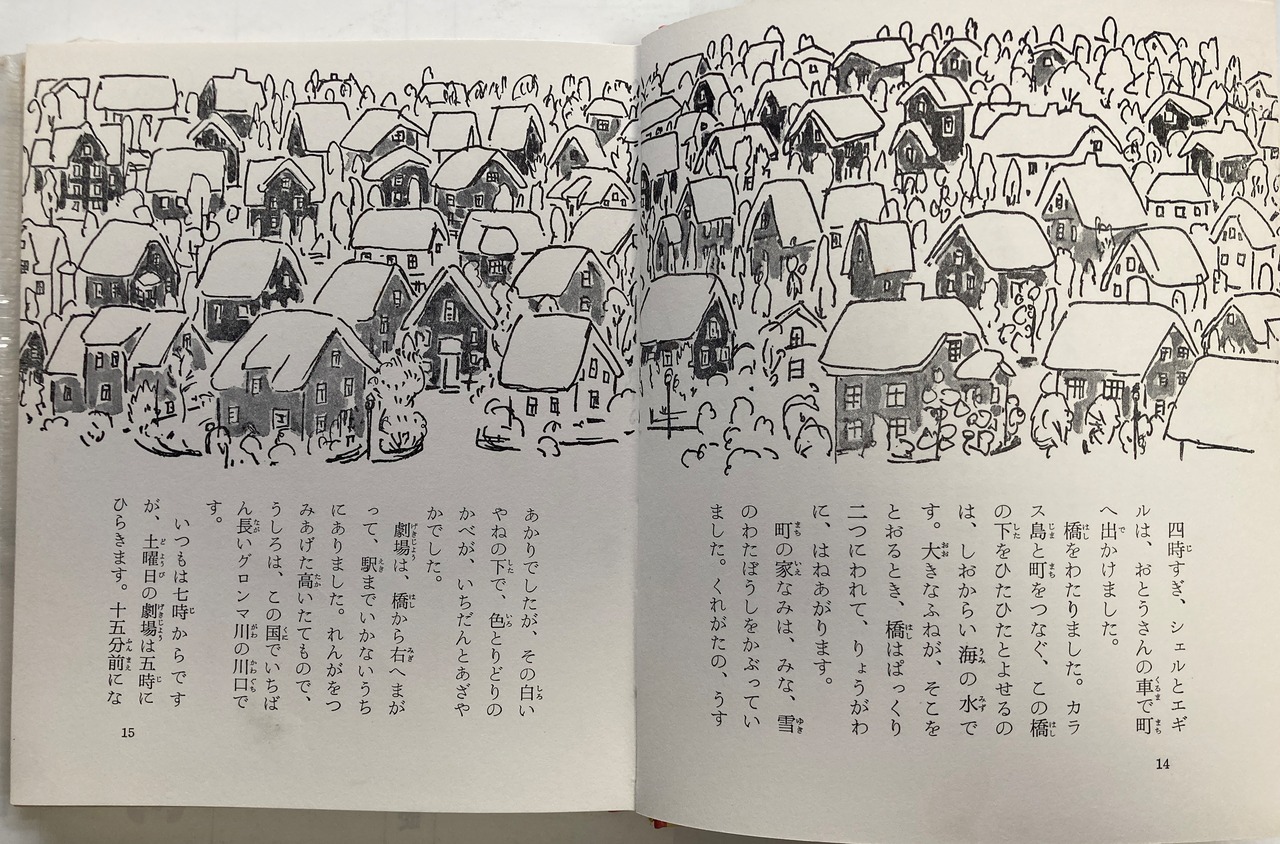 四時すぎ、シェルとエギ
ルは、おとうさんの車で町
へ出かけました。
橋をわたりました。カラ
ス島と町をつなぐ、この橋
の下をひたひたとよせるの
は、しおからい海の水で
す。大きなふねが、そこを
とおるとき、橋はぱっくり
二つにわれて、りょうがわ
に、はねあがります。
町の家なみは、みな、雪
のわたぼうしをかぶってい
ました。くれがたの、うす
14
あかりでしたが、その白い
やねの下で、色とりどりの
かべが、いちだんとあざや
かでした。
劇場は、橋から右へまが
って、駅までいかないうち
にありました。れんがをつ
みあげた高いたてもので、
うしろは、この国でいちば
ん長いグロンマ川の川口で
す。
いつもは七時からです
が、土曜日の劇場は五時に
ひらきます。十五分前にな
15